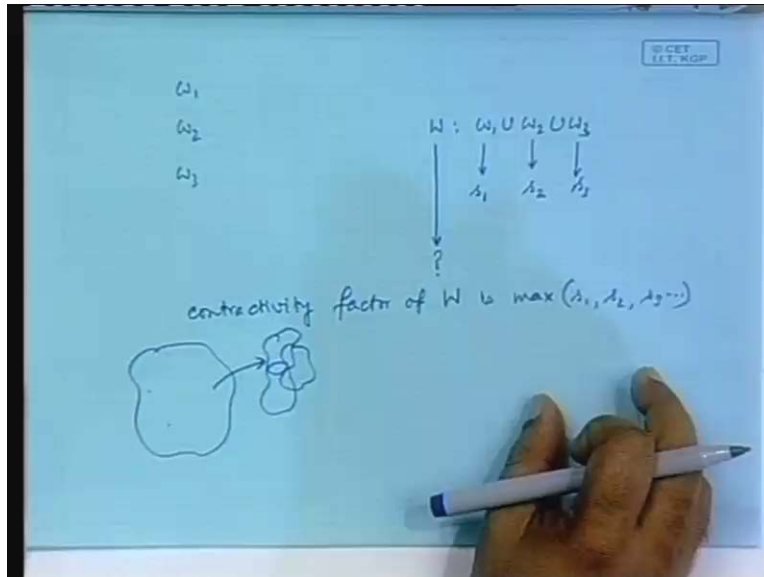 © CET
I.I.T. KGP
ω₁
ω₂
ω₃
W : ω₁ ∪ ω₂ ∪ ω₃
s₁ s₂ s₃
?
contractivity factor of W is max (s₁, s₂, s₃ ...)